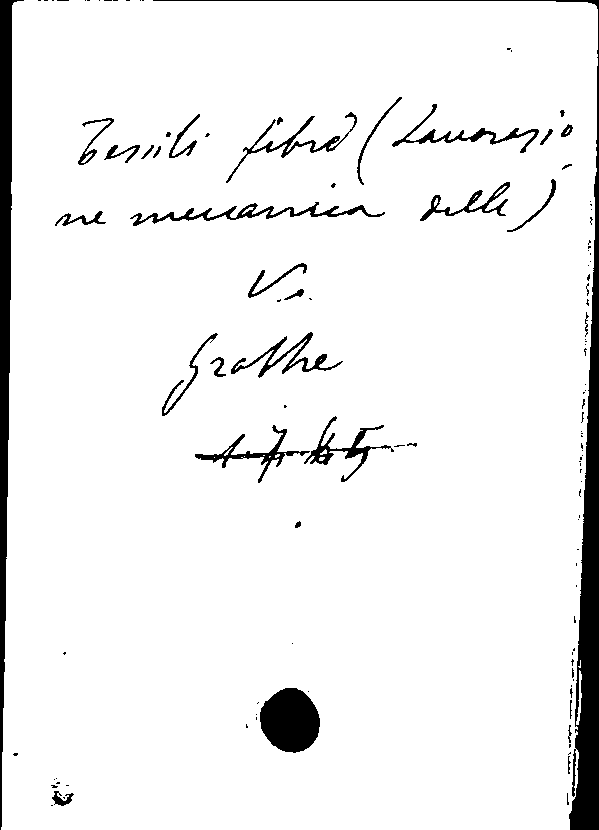 Tessili fibre (Lavorazio
ne meccanica delle)
V.
Grothe